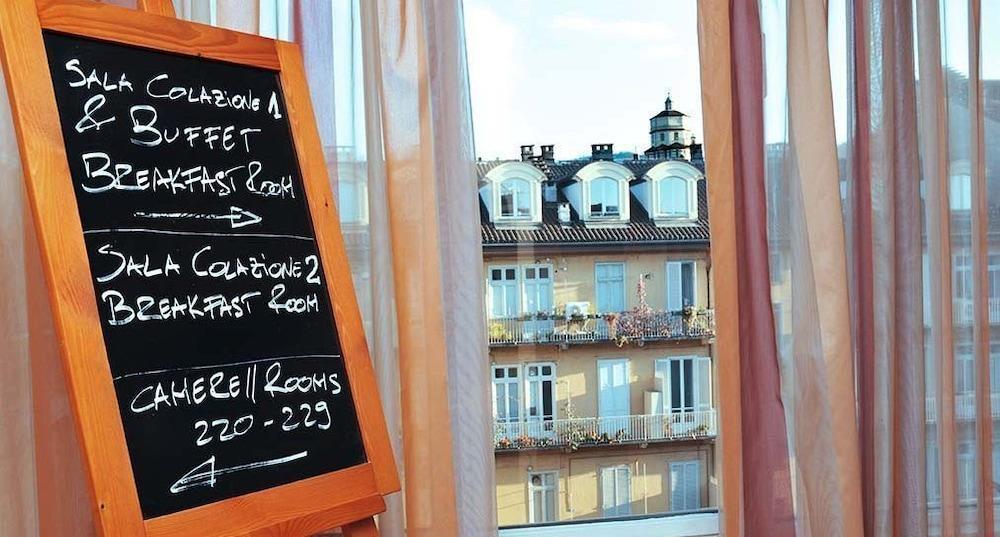 SALA COLAZIONE 1
& BUFFET
BREAKFAST ROOM
SALA COLAZIONE 2
BREAKFAST ROOM
CAMERE // ROOMS
220 - 229